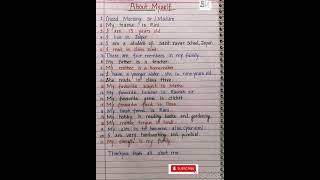 About Myself
1. Good Morning Sir/Madam
2. My name is Rini
3. I am 13 years old
4. I live in Jaipur
5. I am a student of saint xavier School, Jaipur.
6. I read in class nine.
7. There are four members in my family.
8. My father is a teacher.
9. My mother is a homemaker
10. I have a younger sister she is nine years old
11. She reads in class three
12. My favourite subject is Maths
13. My favourite teacher is Ramesh sir
14. My favourite game is cricket
15. My favourite food is Dosa
16. My best friend is Rani
17. My hobby is reading books and gardening
18. My mother tongue is hindi
19. My aim is to become a/an (your aim)
20. I am very hardworking and punctual.
21. My strength is my family.
Thankyou thats all about me
SUBSCRIBE